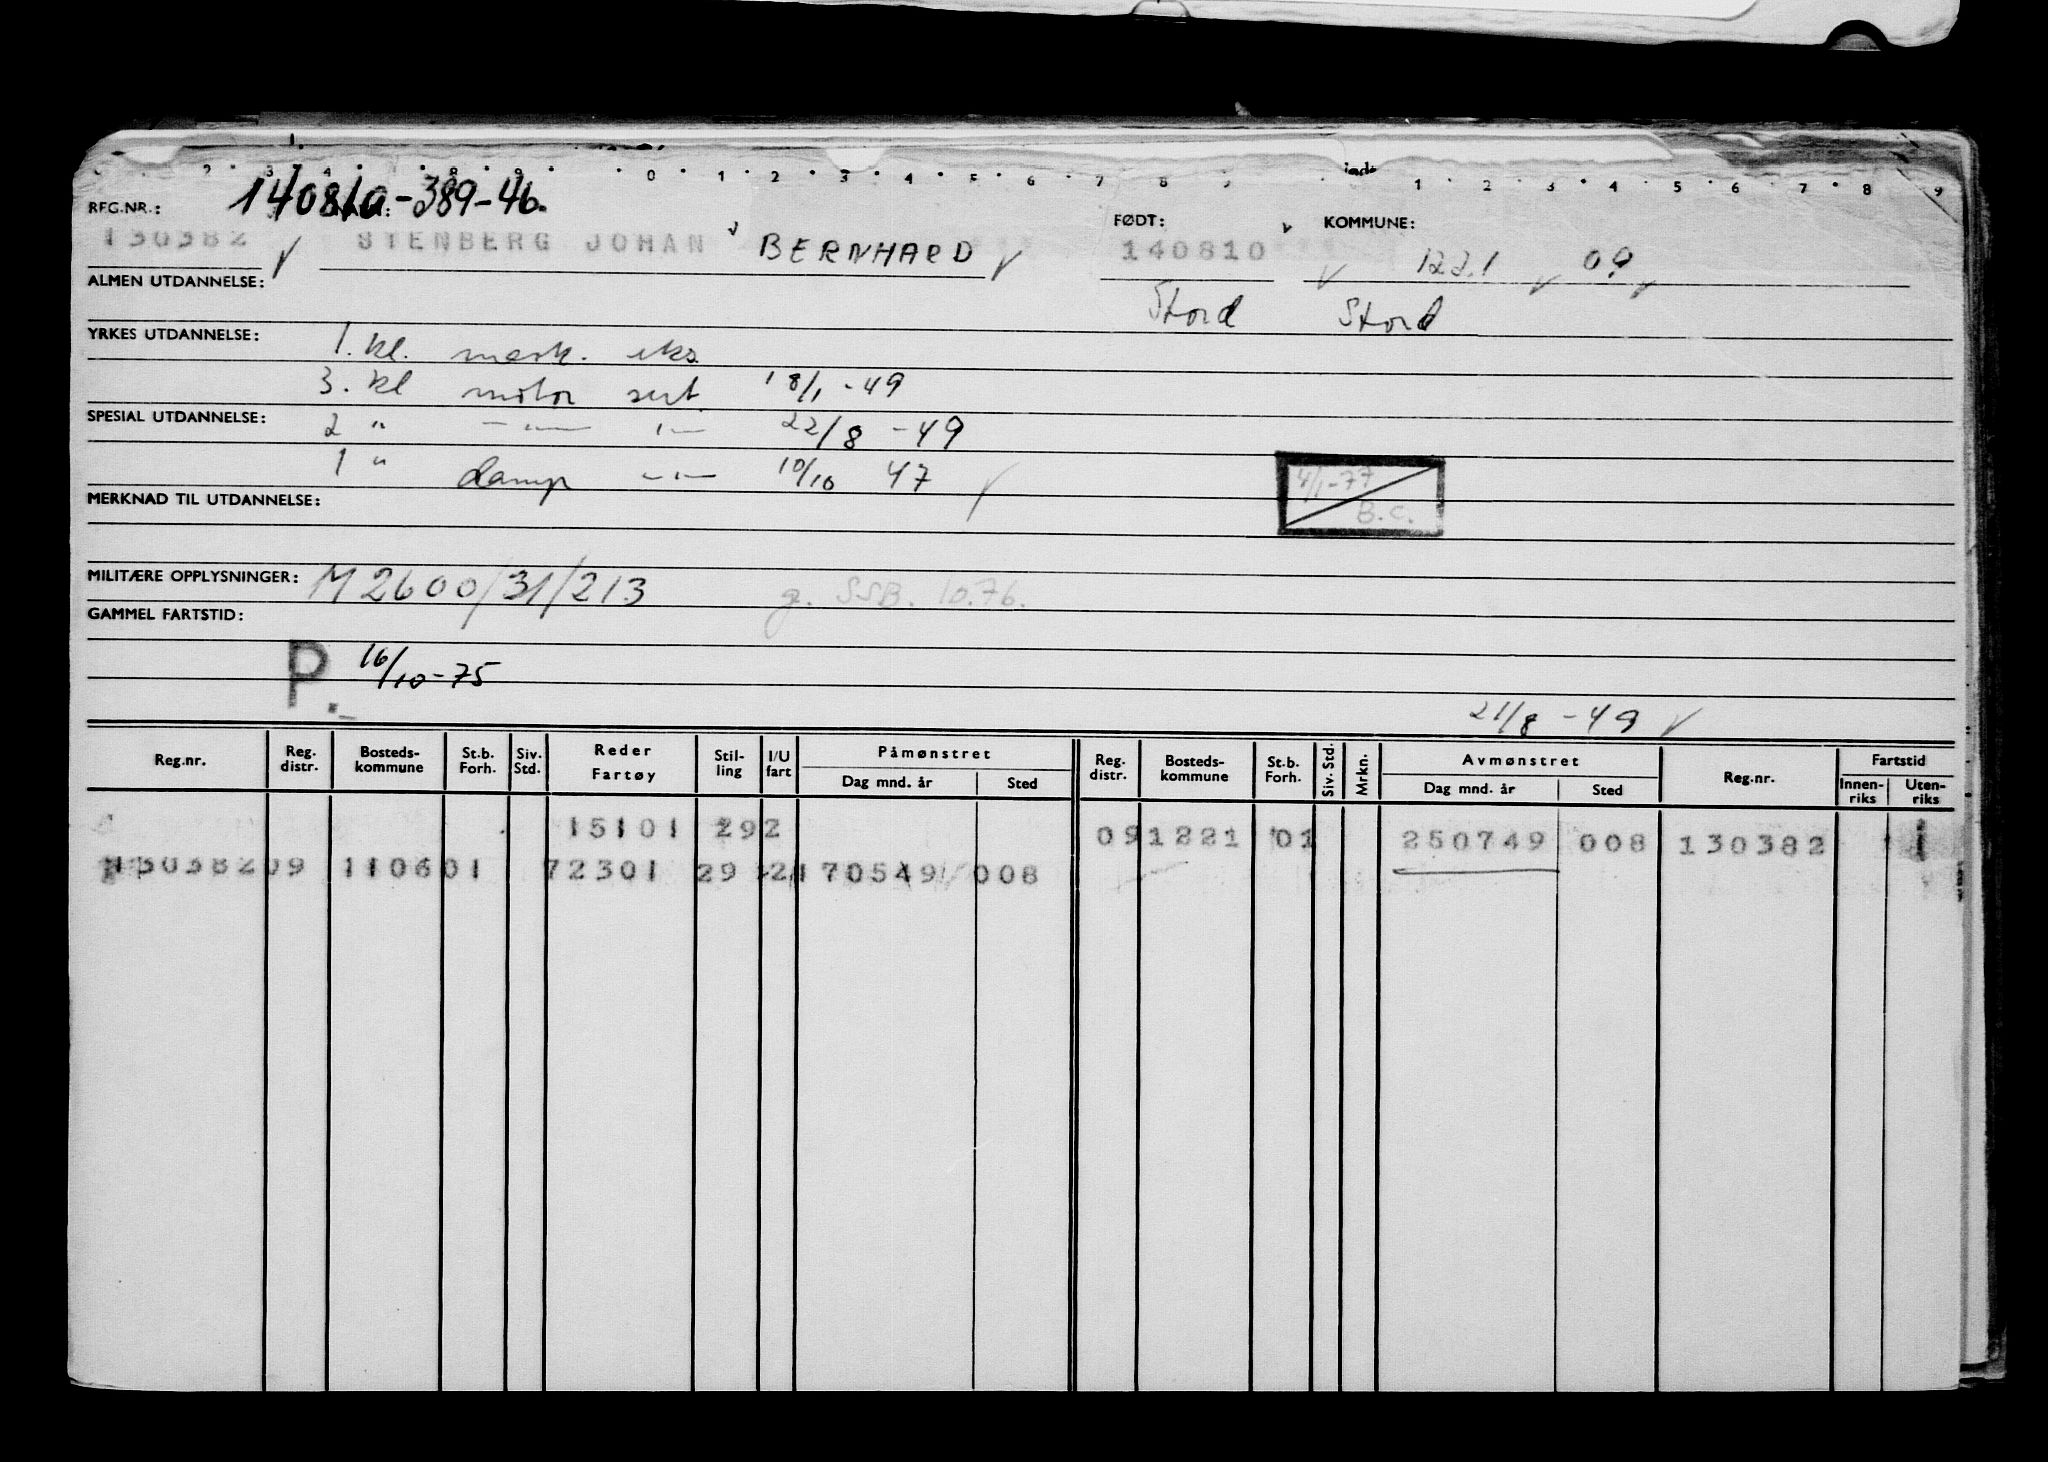 2 3 4 8 9 0 1 2 3 4 5 6 7 8 9 1 2 3 4 5 6 7 8 9
140810-389-46.
REG.NR.: FØDT: KOMMUNE:
130382 STENBERG JOHAN BERNHARD 140810 1221 09
ALMEN UTDANNELSE: Stord Stord
YRKES UTDANNELSE: 1. kl. mask. eks.
3. kl motor sert. 18/1 - 49
SPESIAL UTDANNELSE: 2 " -"- -"- 22/8 - 49
1 " damp -"- 10/10 47
4/1-77
B.C.
MERKNAD TIL UTDANNELSE:
MILITÆRE OPPLYSNINGER: M 2600/31/213 g. SSB. 10.76.
GAMMEL FARTSTID:
P. 16/10-75
21/8 - 49
Reg.nr. Reg. distr. Bosteds-kommune St.b. Forh. Siv. Std. Reder Fartøy Stil-ling I/U fart Påmønstret Dag mnd. år Sted Reg. distr. Bosteds-kommune St.b. Forh. Siv. Std. Mrkn. Avmønstret Dag mnd. år Sted Reg.nr. Fartstid Innen-riks Uten-riks
15101 292 09 1221 01 250749 008 130382 1
130382 09 1106 01 72301 29 2 170549 008